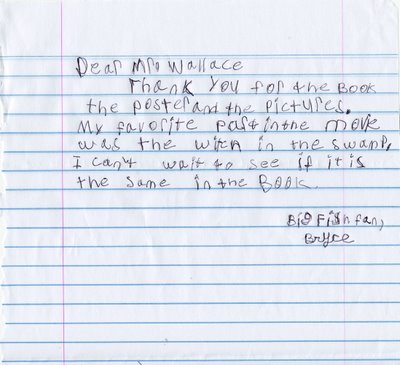 Dear Mr. Wallace
Thank You for the Book
the poster and the Pictures.
My favorite part in the move
was the wich in the swamp,
I can't wait to see if it is
the same in the Book.
Big Fish fan,
Bryce